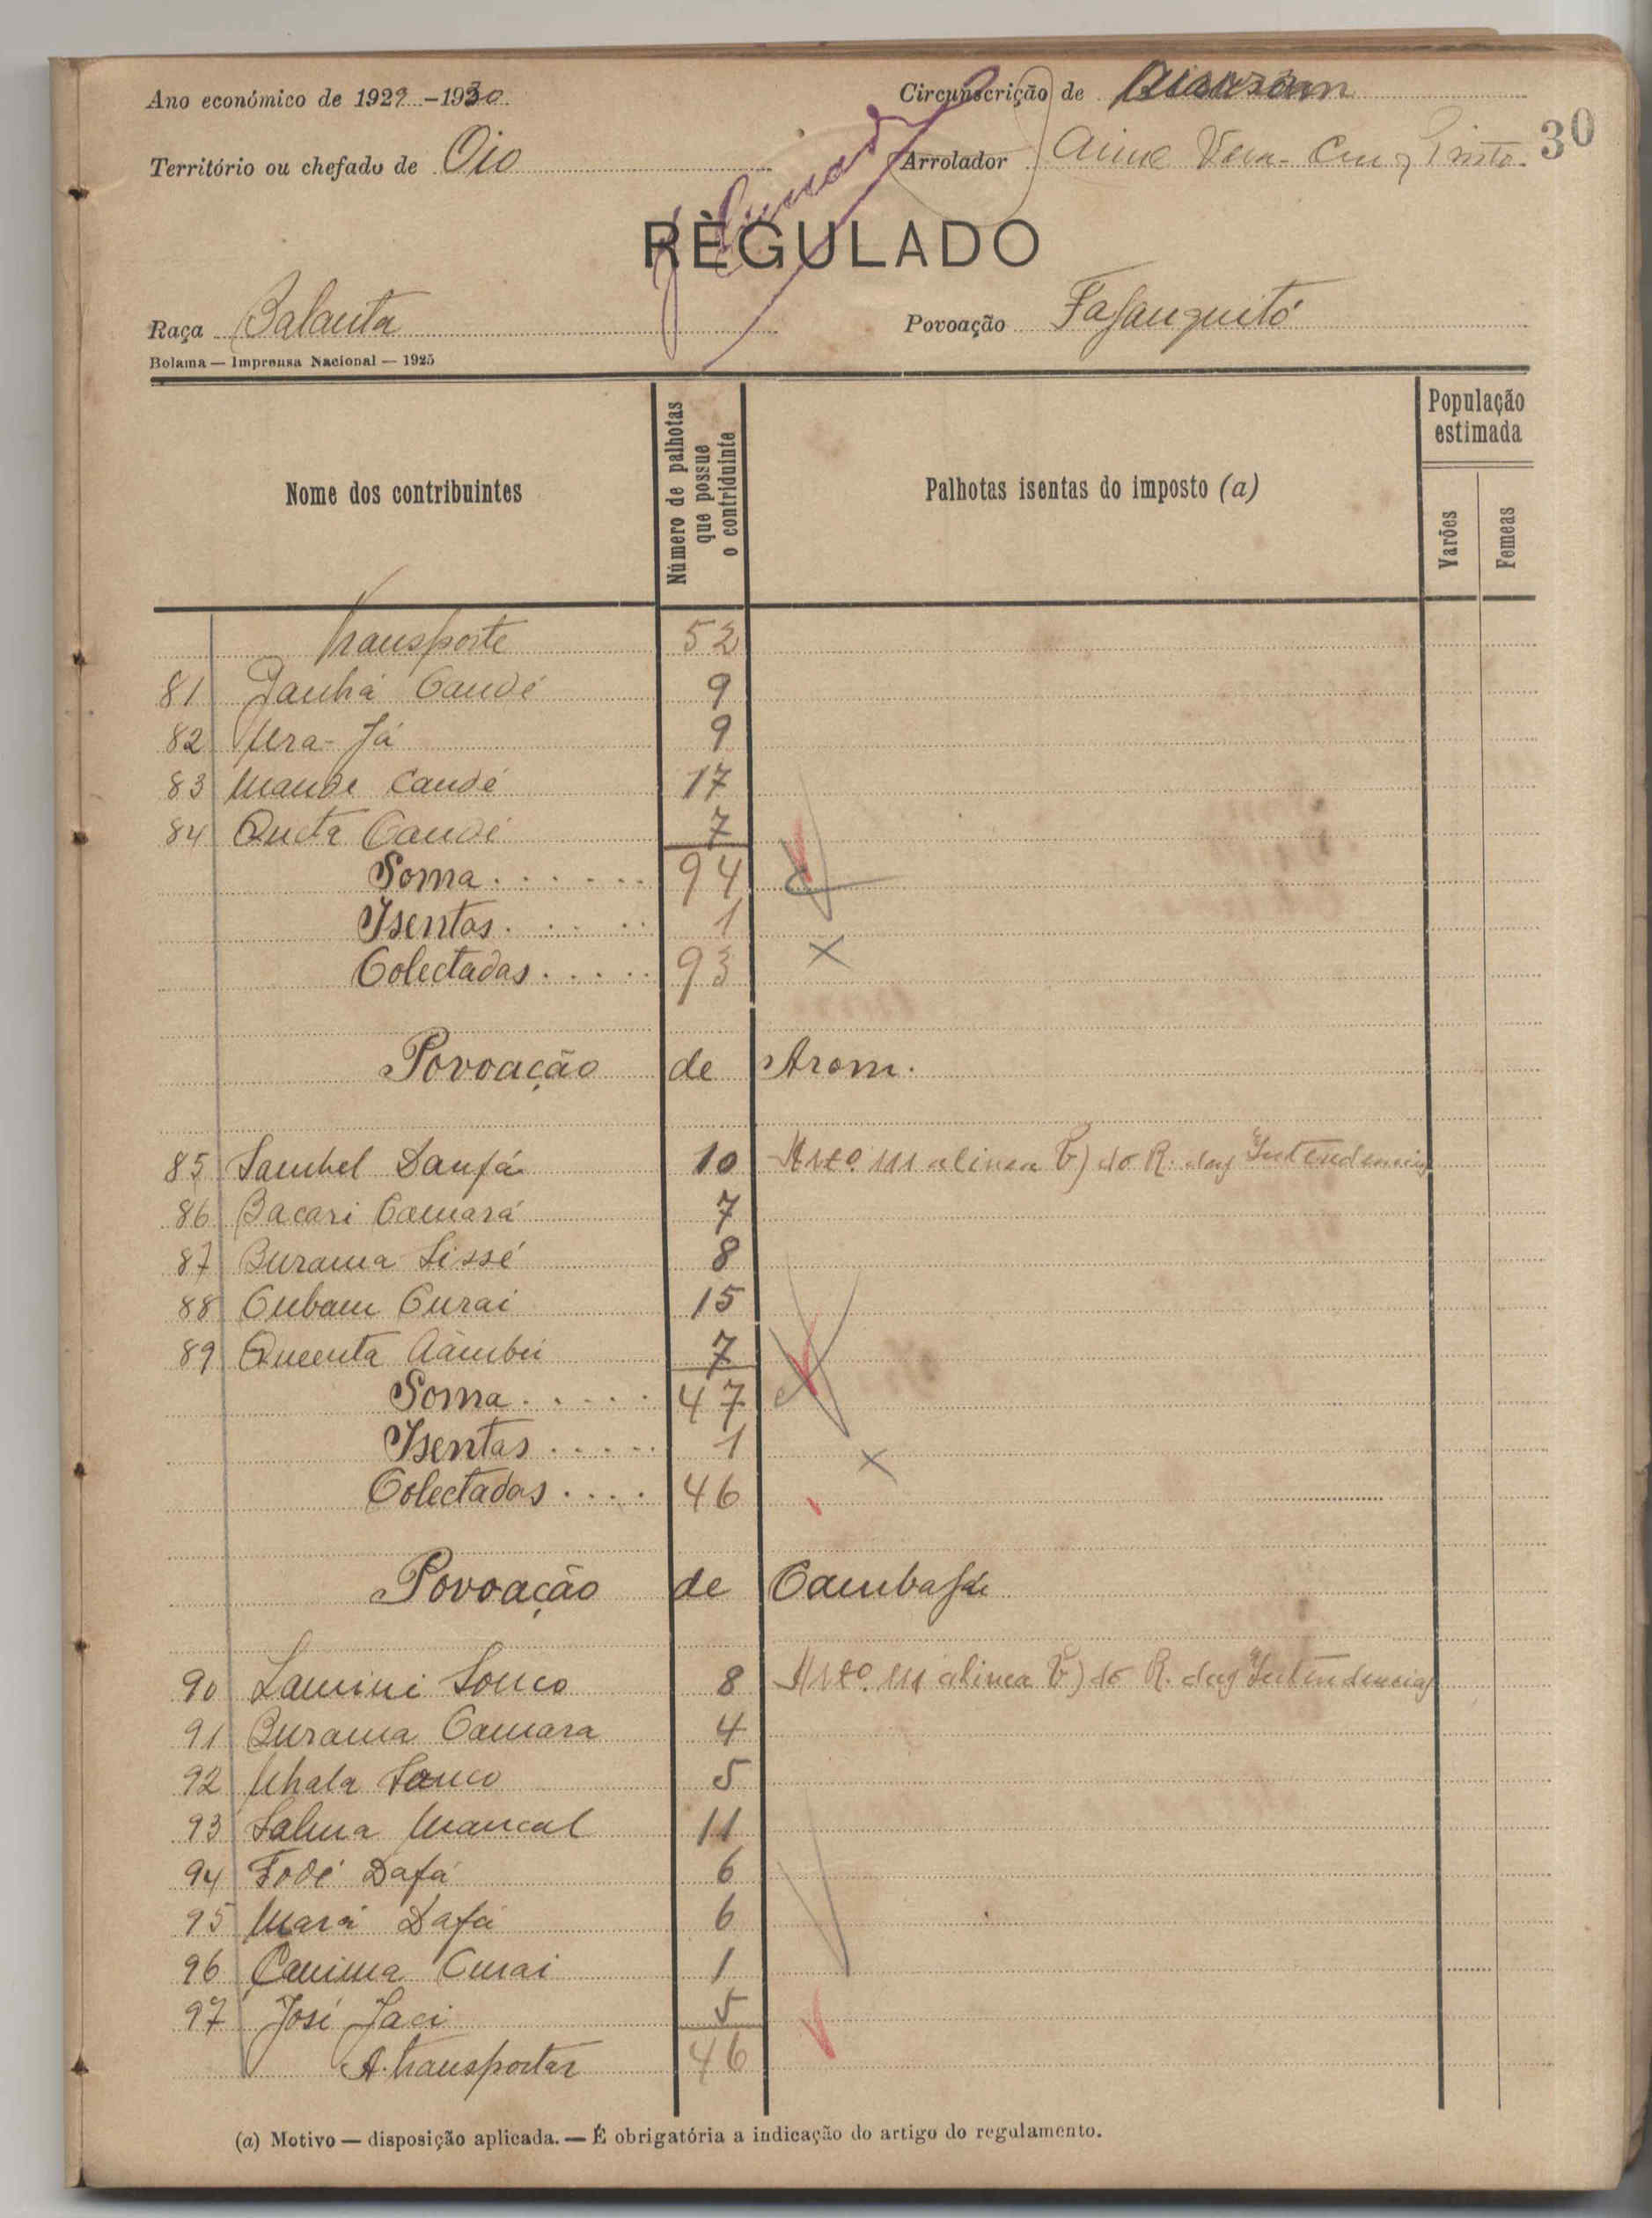 Ano económico de 1929-1930
Circunscrição de
30
Território ou chefado de Oio
Arrolador Vera-Cruz Pinto.
RÈGULADO
Raça Balanta
Povoação Fajanquitó
Bolama — Imprensa Nacional — 1925
Nome dos contribuintes
Número de palhotas que possue o contriduinte
Palhotas isentas do imposto (a)
População estimada
Varões
Femeas
Transporte 52
81 Janhá Candé 9
82 Já 9
83 Mande Candé 17
84 Queta Candé 7
Soma...... 94
Isentas..... 1
Colectadas..... 93
Povoação de Arom.
85 Sambel Danfá 10 Artº 111 alinea b) do R. das Intendencias
86 Bacari Camará 7
87 Burama Sissé 8
88 Cubam Curai 15
89 Queenta 7
Soma..... 47
Isentas..... 1
Colectadas.... 46
Povoação de Cambajú
90 Lamini Sonco 8 Artº. 111 alinea b) do R. das Intendencias
91 Burama Camara 4
92 Sonco 5
93 Salma Mancal 11
94 Fodé Dafá 6
95 Mará Dafá 6
96 Canima Curai 1
97 José Jaci 5
A transportar 46
(a) Motivo — disposição aplicada. — É obrigatória a indicação do artigo do regulamento.